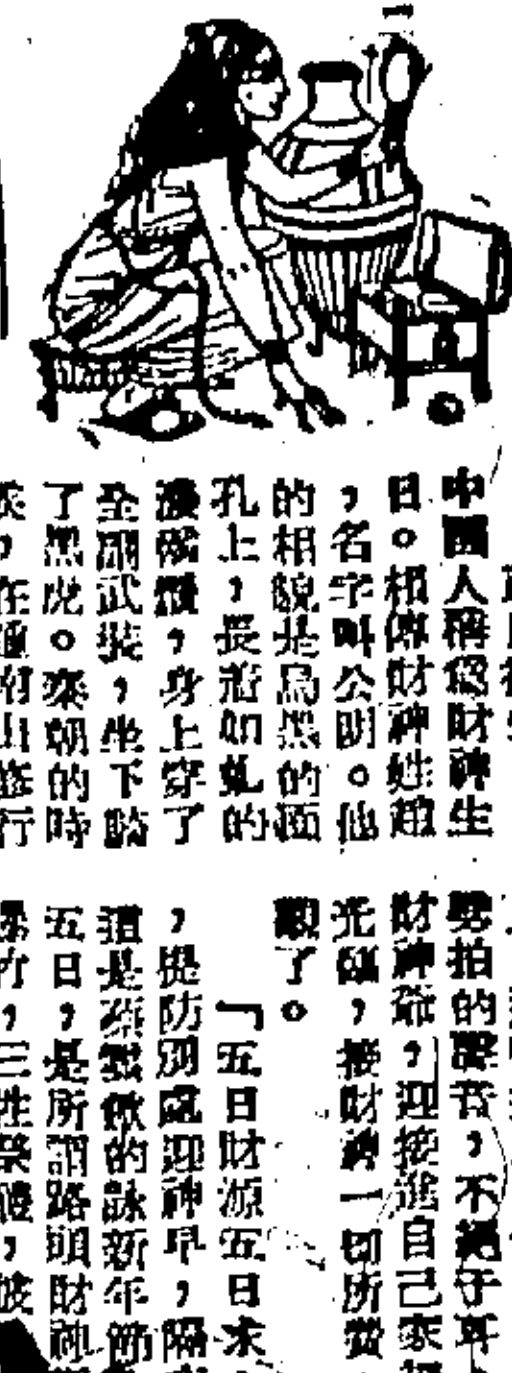 中國人稱為財神生
日。相傳財神姓趙
，名字叫公明。他
的相貌是烏黑的面
孔上，長着如虬的
濃鬚，身上穿了
全副武裝，坐下騎
了黑虎。秦朝的時
，在終南山修行
劈拍的聲音，不絕于耳
財神爺，迎接進自己家裡
光臨，接財神一切所費
了。
「五日財源五日求
，提防別處迎神早，隔
這是蔡雲做的詠新年節
五日，是所謂路頭財神
爆竹，三牲祭禮，